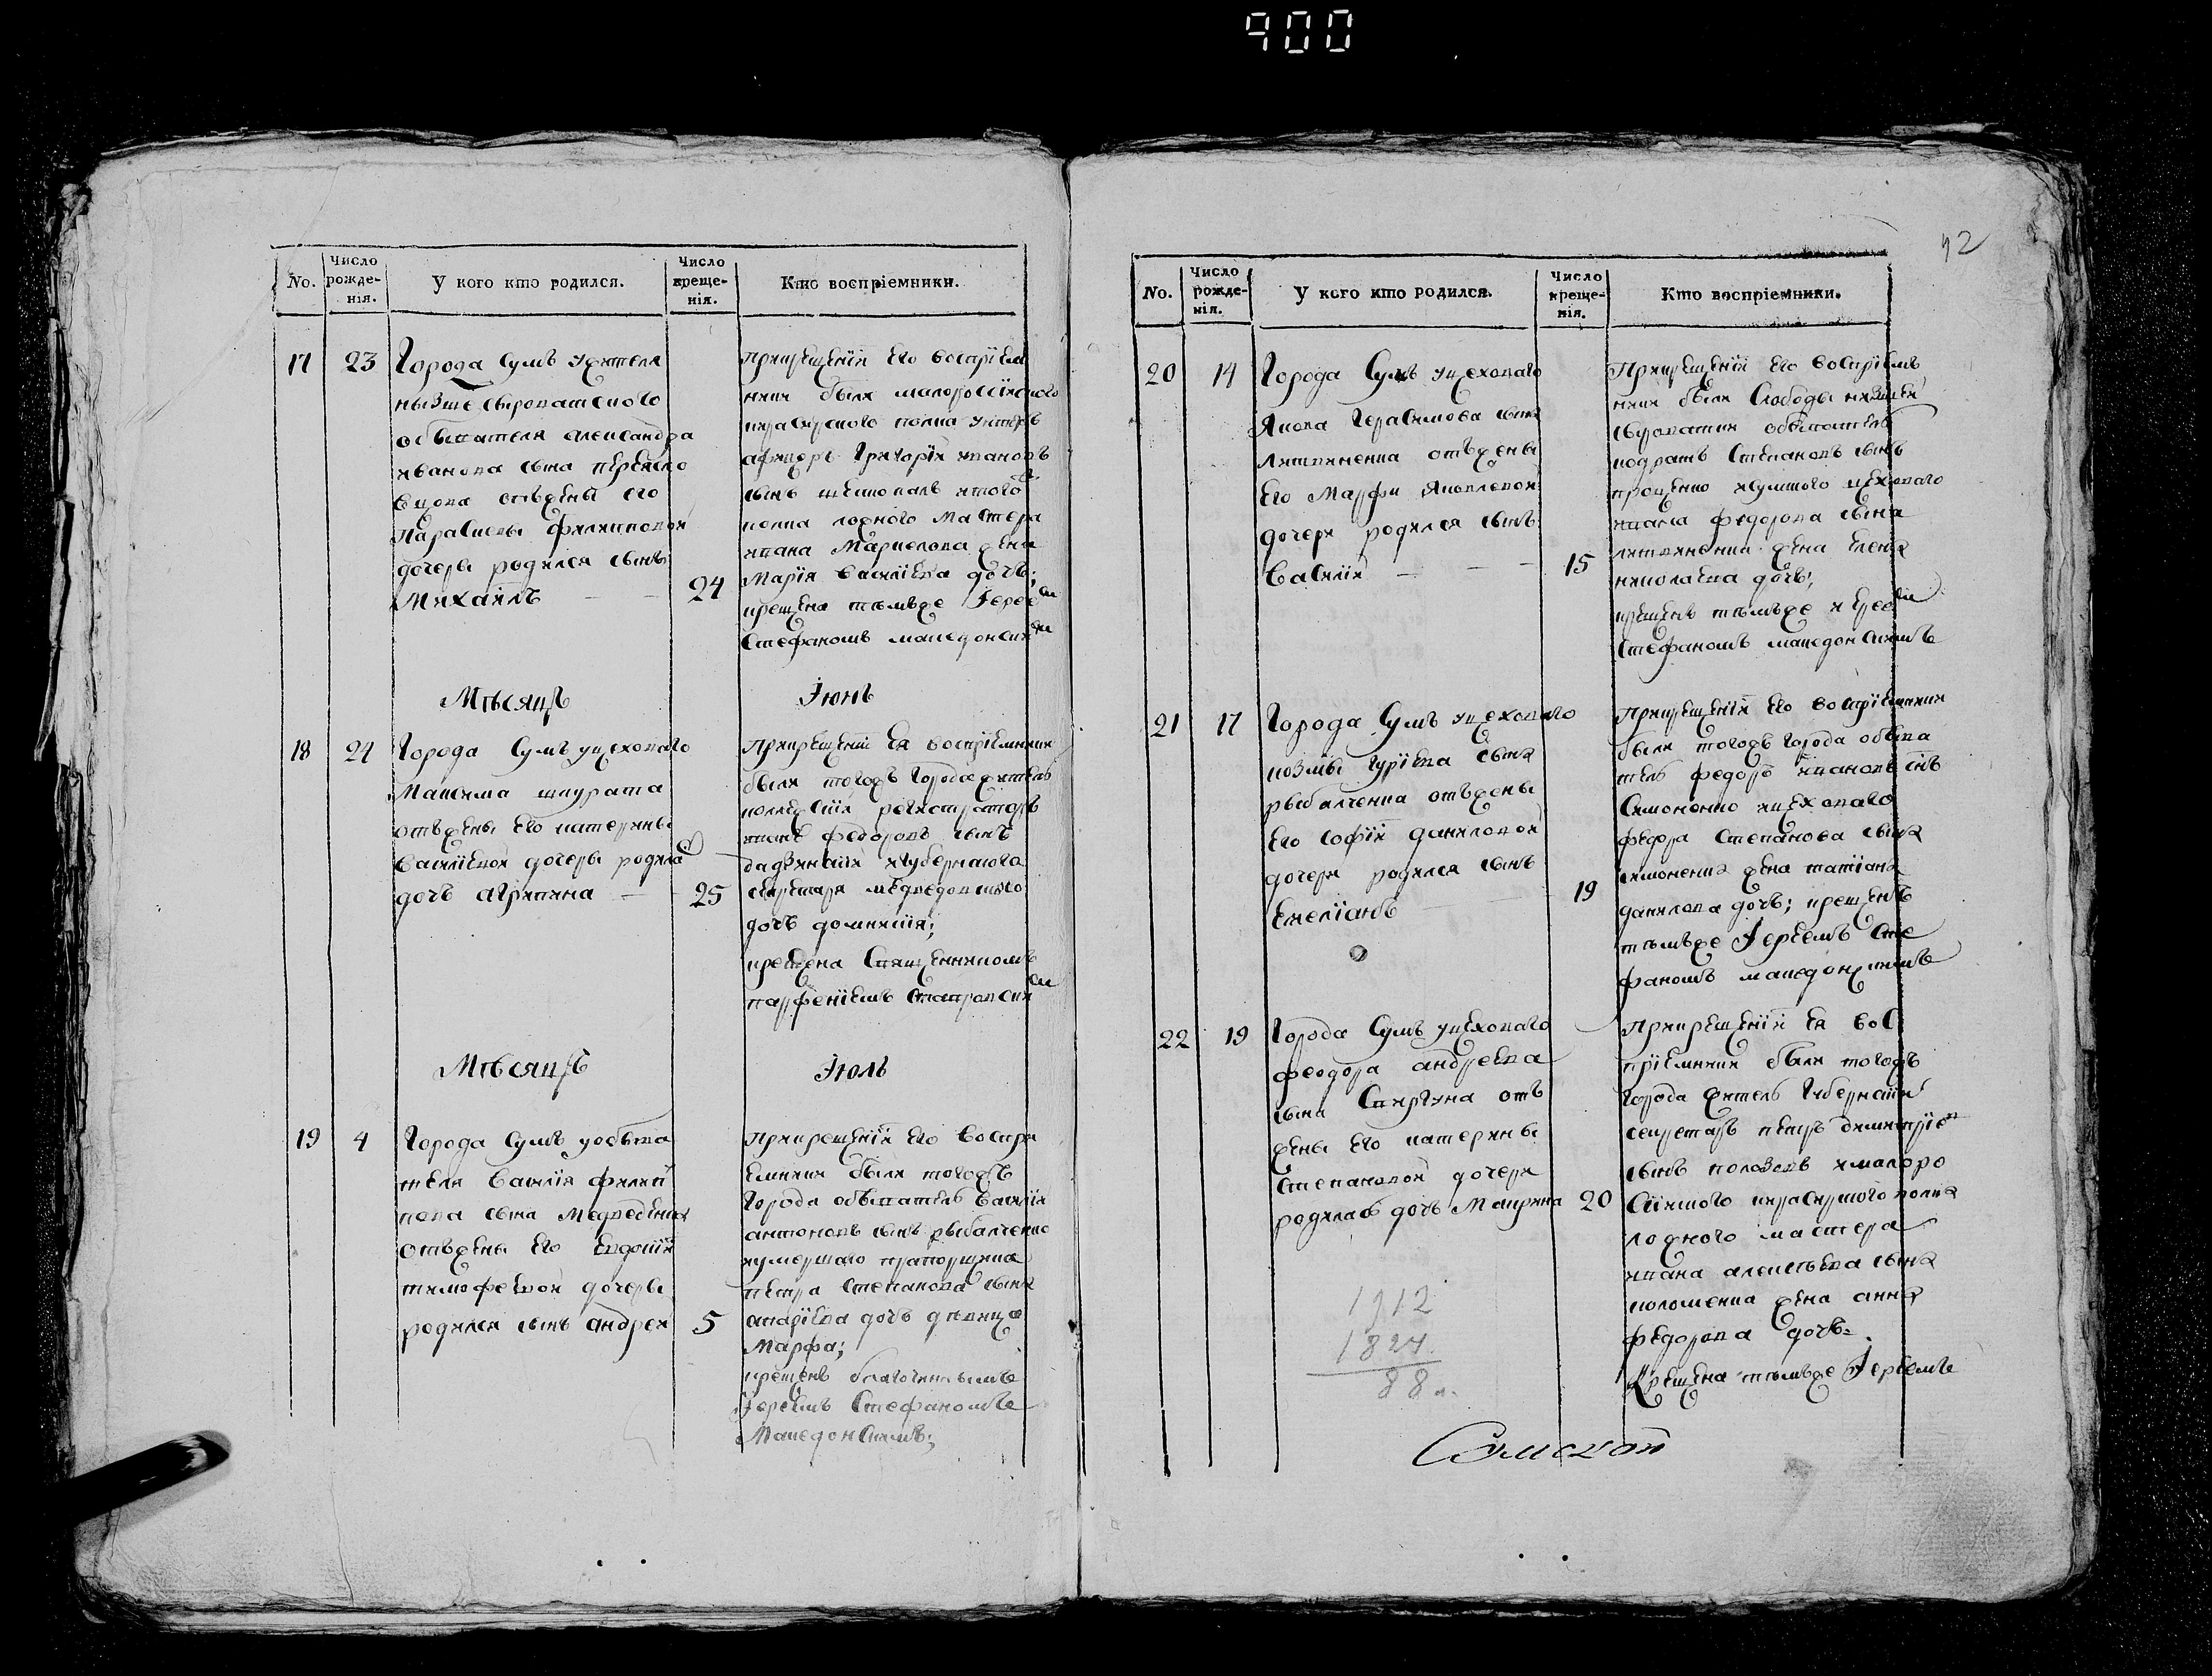 900
42
No.
Число рожде-нія.
У кого кто родился.
Число креще-нія.
Кто воспріемники.
17
23
Города Сумъ ужителя
нызше сыроватского
обывателя александра
иванова сына
отъжены его
Парасковы филиповой
дочеры родился сынъ
Михаилъ
24
прикрещеніи его воспріем
ники были малороссійского
кирасирского полка унтеръ
афицеръ Григорій ивановъ
сынъ
полка ложного мастера
ивана жена
Марія василіева дочъ;
крещена тѣмъже Іерее
Стефаномъ македонски
Мѣсяцъ
Іюнъ
18
24
Города Сумъ уцеховаго
Максима шкурата
отъжены его катерины
Василіевой дочеры родила
дочъ агрипина
25
Прикрещеніи ея воспріемники
были тогожъ Города житель
регистраторъ
федоровъ сынъ
игубернского
секретаря
дочъ домникія;
крещена Священникомъ
парфеніемъ
Мѣсяцъ
Іюль
19
4
Города Сумъ уобыва
теля Василія филип
пова сына Медведева
отъжены его Евдокіи
тимофеевой дочеры
родился сынъ андрей
5
Прикрещеніи его воспри
емники были тогожъ
Города обыватель Василій
антоновъ сынъ рыбалченко
иумершаго прапорщика
петра степанова сына
дочъ дѣвица
Марфа;
крещенъ благочиннымъ
Іереемъ Стефаномъ
Македонскимъ;
No.
Число рожде-нія.
У кого кто родился.
Число креще-нія.
Кто воспріемники.
20
14
Города Сумъ уцеховаго
Якова Герасимова сына
литвиненка отъжены
его Марфи Яковлевой
дочери родился сынъ
Василій
15
Прикрещеніи его воспріемъ
ники были Слободы нижшей
сыроватки обыватель
кодратъ Степановъ сынъ
проценко исумского цеховаго
ивана федорова сына
литвиненка жена елена
николаева дочъ;
крещенъ тѣмъже иерео
Стефаномъ македонскимъ
21
17
Города Сумъ уцеховаго
козмы гуріева сына
рыбалченка отъжены
его софіи даниловой
дочери родился сынъ
Емеліанъ
19
Прикрещеніи его воспріемники
были тогожъ города обыва
тель федоръ ивановъ снъ
Симоненко ицеховаго
федора Степанова сына
симоненка жена татіана
данилова дочъ; крещенъ
тѣмъже Іереемъ Сте
фаномъ македонскимъ
22
19
Города Сумъ уцеховаго
феодора андреева
сына Спиргуна отъ
жены его катерины
Степановой дочери
родилась дочъ Макрина
20
Прикрещеніи ея вос
пріемники были тогожъ
города житель Губернскій
секретаръ петръ димитріе
сынъ полозовъ ималоро
сійского кирасирского полка
ложного мастера
ивана алексѣева сына
коломенка жена анна
федорова дочъ.
Крещена тѣмъже Іереемъ
1912
1824
88 л.
Сумской